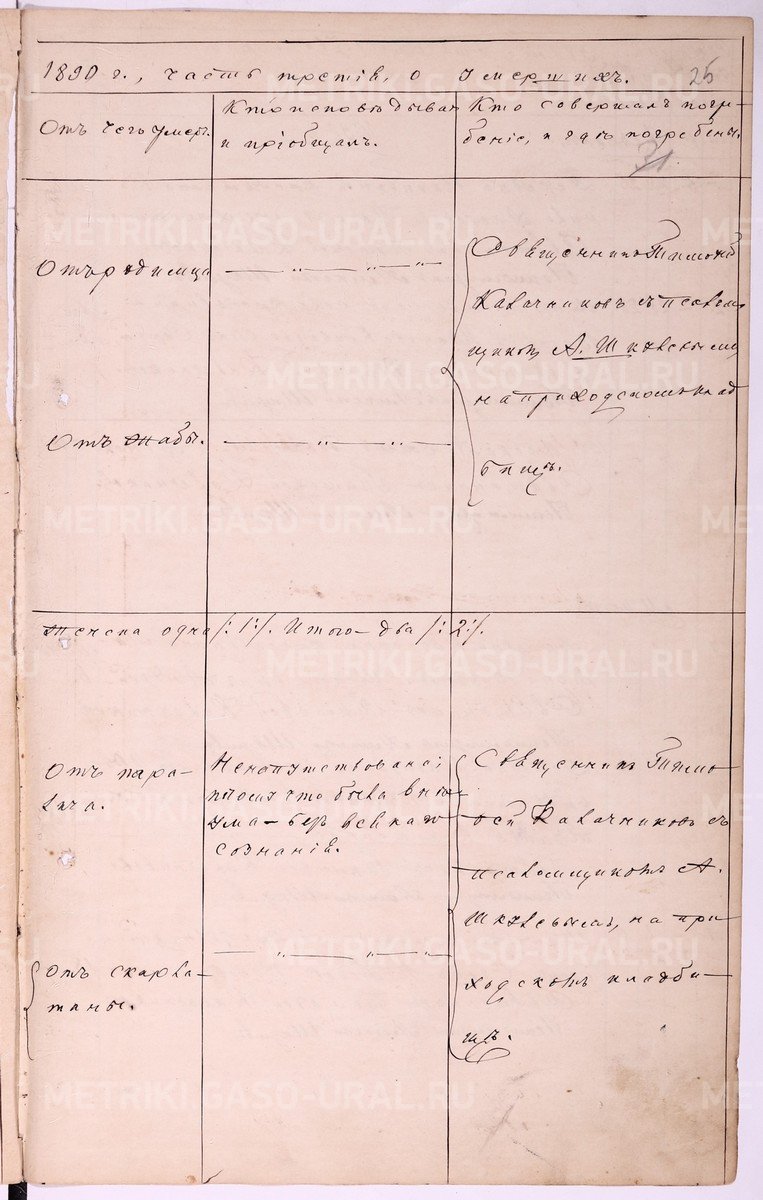 1890 г., часть третія, о умершихъ.
25
Отъ чего умеръ.
Кто исповѣдывалъ
и пріобщалъ.
Кто совершалъ погре-
беніе, и гдѣ погребены.
31
Отъ родимца
— „ — „ — „ —
Священникъ Тимоѳей
Калачниковъ съ псалом-
щикомъ А.
на приходскомъ клад
бищѣ.
Отъ жабы.
— „ — „ —
Женска одна /: 1 :/. Итого — два /: 2 :/.
Отъ пара-
лича.
Ненапутствована;
потому что была внѣ
ума — безъ всякаго
сознанія.
Священникъ Тимо-
ѳей Калачниковъ съ
псаломщикомъ А.
на при-
ходскомъ кладби-
щѣ.
Отъ скарла-
тины.
— „ — „ —
METRIKI.GASO-URAL.RU